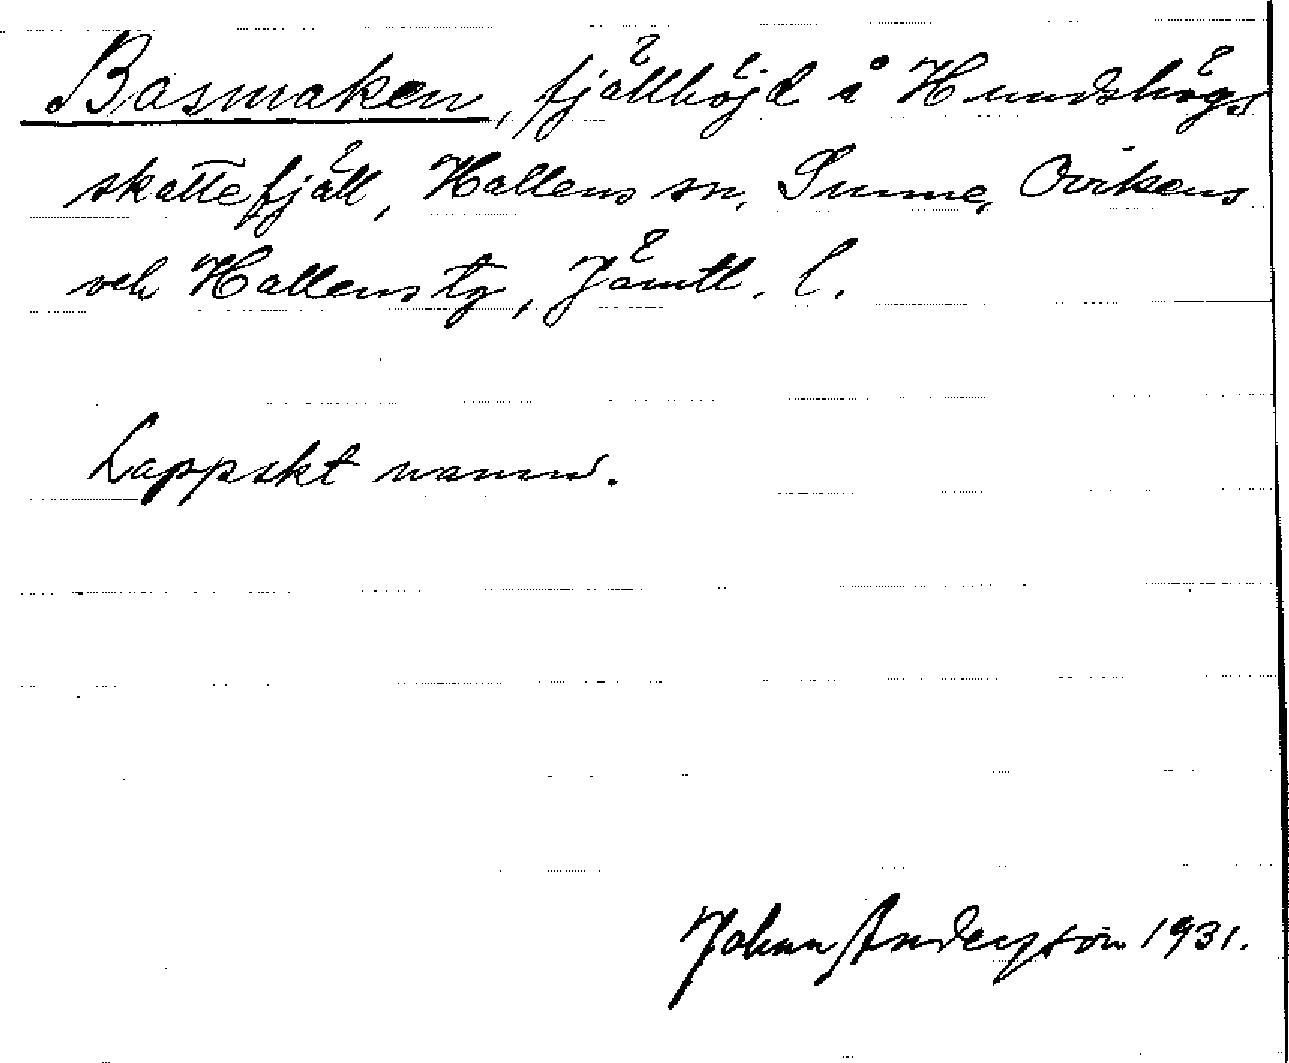 Basmaken, fjällhöjd å Hundshögs
skattefjäll, Hallens sn, Sunne, Ovikens
och Hallens tg, Jämtl. l.
Lappskt namn.
Johan Anderson 1931.